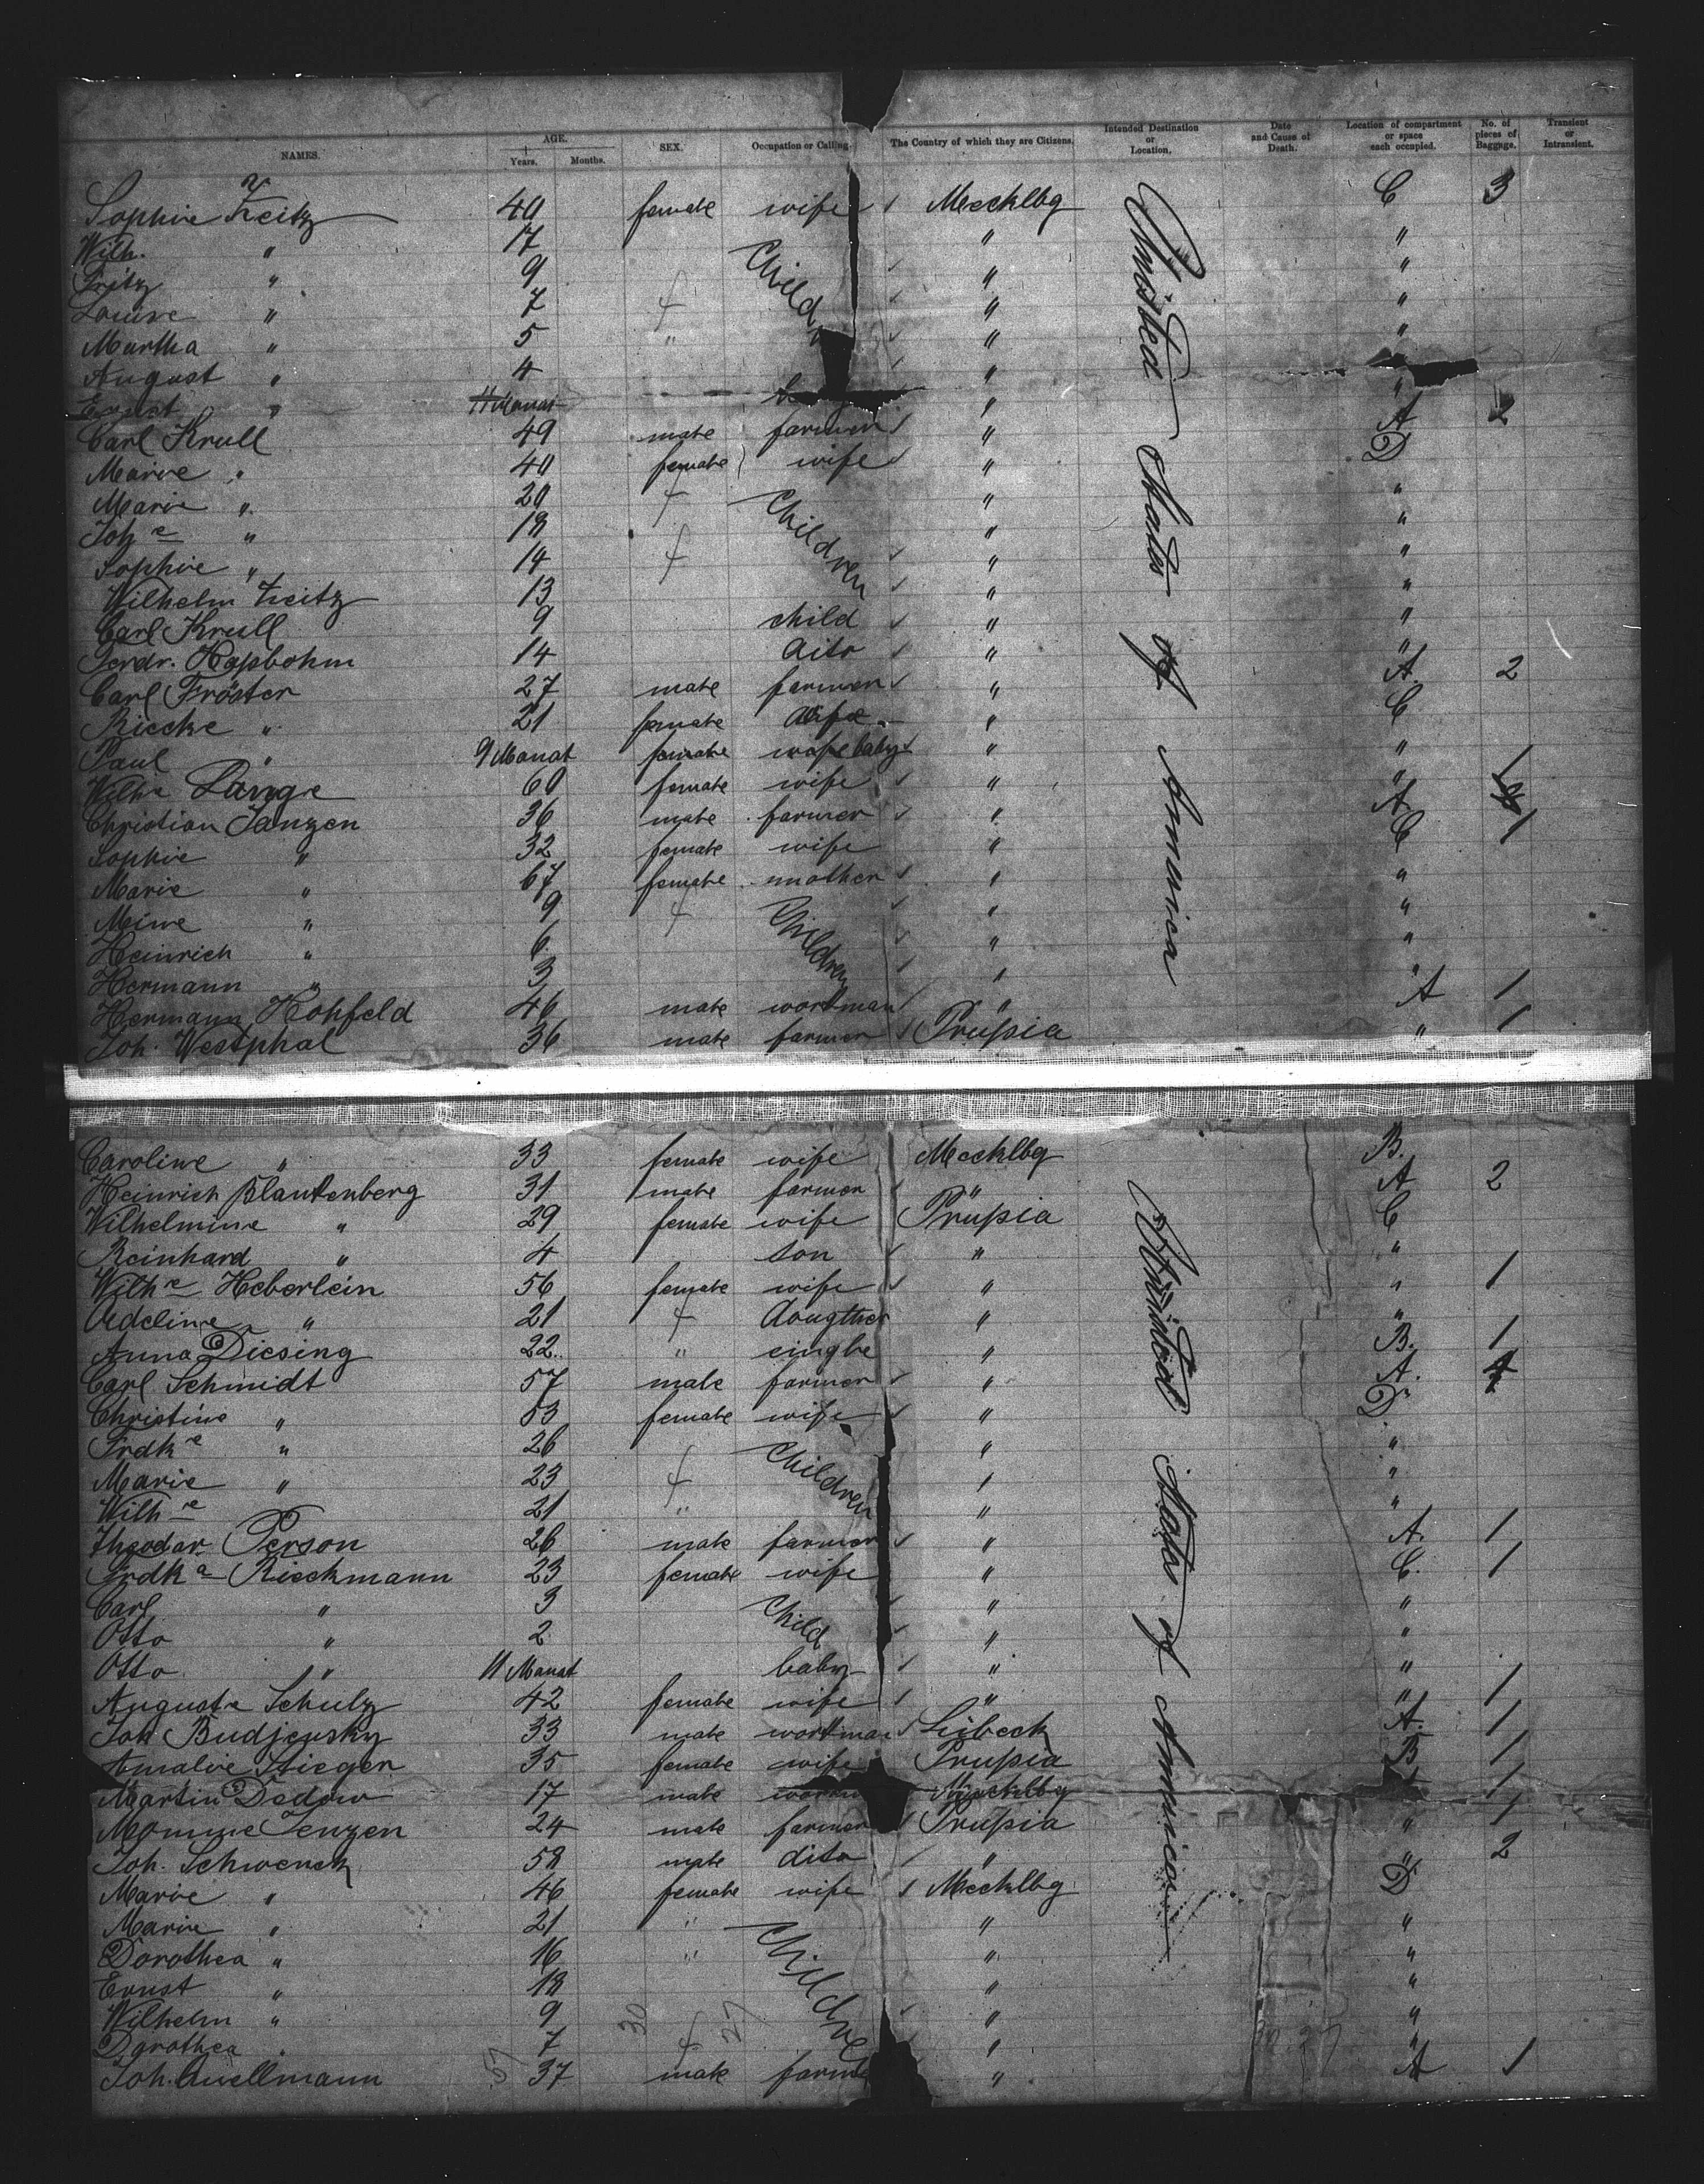 NAMES. AGE. Years. Months. SEX. Occupation or Calling. The Country of which they are Citizens. Intended Destination or Location. Date and Cause of Death. Location of compartment or space each occupied. No. of pieces of Baggage. Transient or Intransient.
Sophie Zeitz 40 female wife Mecklbg C 3
Wilh. " 17 " "
Fritz " 9 " "
Louise " 7 f " "
Martha " 5 " " "
August " 4 " "
Ernst " 11 Monat " "
Carl Krull 49 male farmer " A 2
Marie " 40 female wife " D
Marie " 20 f Children " "
Joh e " 18 " "
Sophie " 14 f " "
Wilhelm Zeitz 13 " "
Carl Krull 9 child " "
Ferdr. Haßbohm 14 dito " "
Carl Fröster 27 male farmer " A. 2
Riecke " 21 female wife " C
Paul " 9 Monat female baby " "
Wilh e Lange 60 female wife " " 1
Christian Janzen 36 male farmer " A
Sophie " 32 female wife " C 1
Marie " 67 female mother " "
Mine " 9 f Children " "
Heinrich " 6 " "
Hermann " 3 " "
Hermann Hohfeld 46 male workman " A 1
Joh. Westphal 36 male farmer Prußia " 1
United States of America
Caroline " 33 female wife Mecklbg B.
Heinrich Blankenberg 31 male farmer " A 2
Wilhelmine " 29 female wife Prußia C
Reinhard " 4 son " "
Wilh e Heberlein 56 female wife " " 1
Adeline " 21 f dougther " "
Anna Diesing 22 " single " B. 1
Carl Schmidt 57 male farmer " A. 4
Christine " 53 female wife " D
Frdk e " 26 Children " "
Marie " 23 f " "
Wilh e " 21 " " "
Theodor Person 26 male farmer " A. 1
Frdk a Rieckmann 23 female wife " C. 1
Carl " 3 Child " "
Otto " 2 " "
Otto " 11 Monat baby " "
Auguste Schulz 42 female wife " " 1
Joh Budjensky 33 male workman Lübeck A. 1
Amalie Stieger 35 female wife Prußia B 1
Martin Dedow 17 male Mecklbg 1
Momme Jenzen 24 male farmer Prußia " 1
Joh. Schwenck 58 male dito " " 2
Marie " 46 female wife Mecklbg D
Marie " 21 " Children " "
Dorothea " 16 " " "
Ernst " 18 " "
Wilhelm " 9 " "
Dorothea " 7 f " "
Joh. Quellmann 37 male farmer " A 1
United States of America
57 30 27